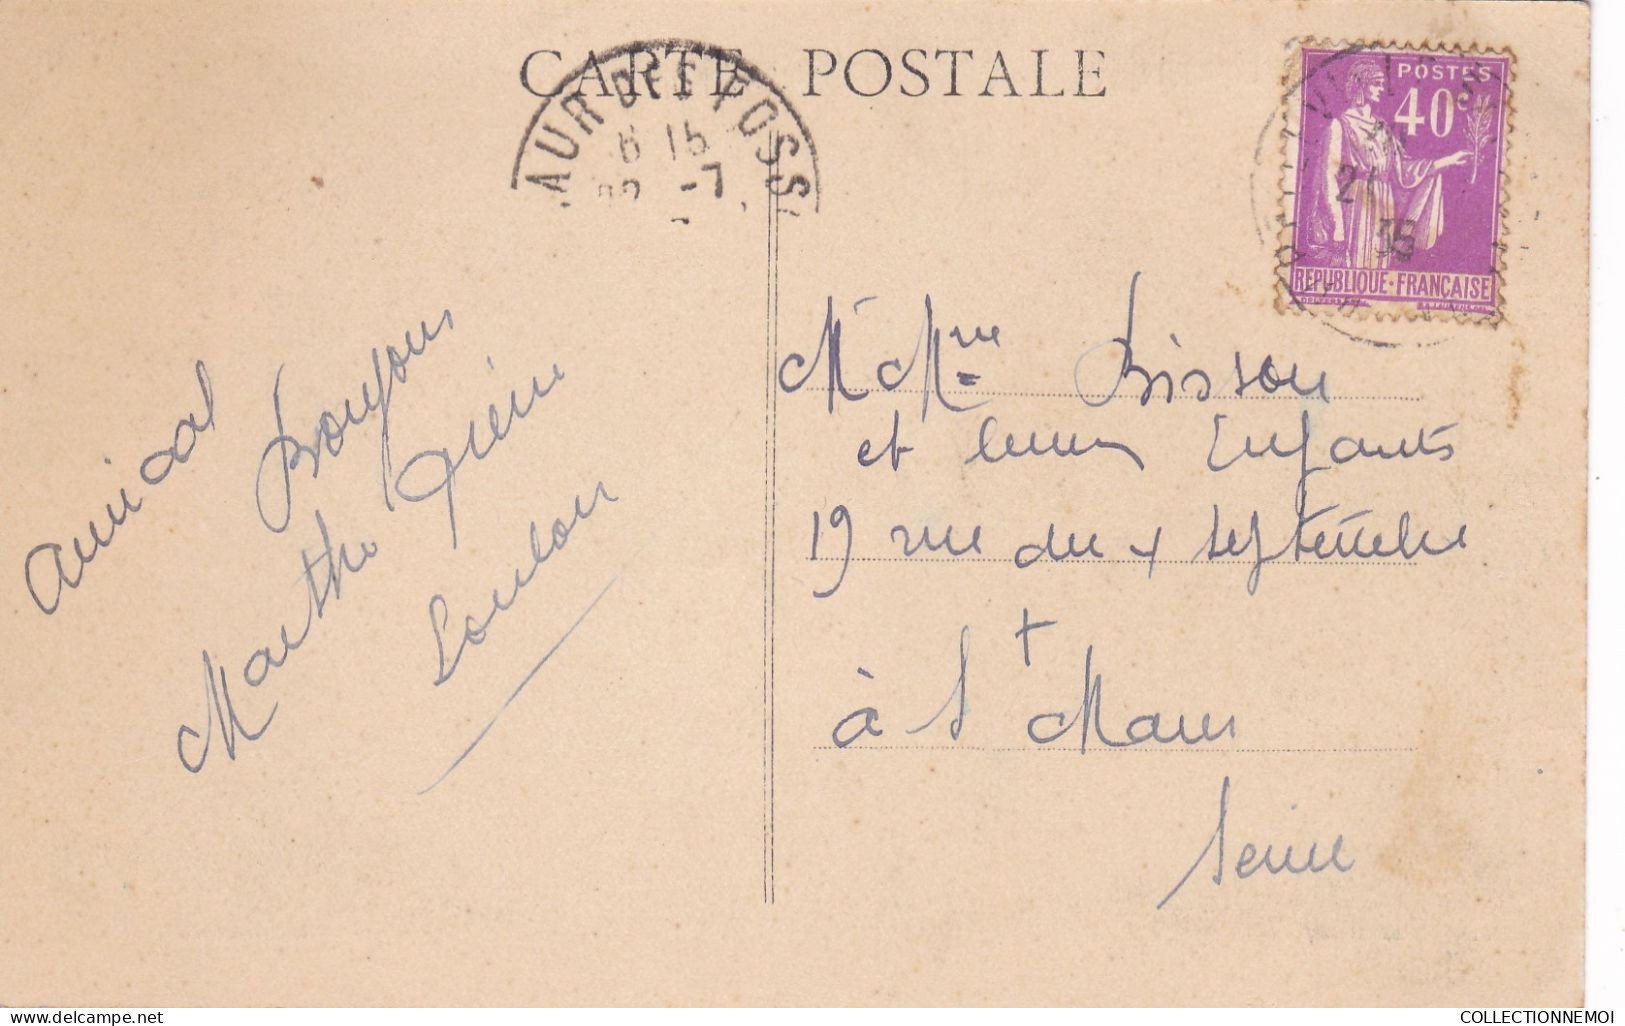 CARTE POSTALE
AUR DES FOSS
6 15
22 -7
POSTES
40c
21
35
REPUBLIQUE-FRANÇAISE
Amical
Bonjour
Marthe
M Mme Bisson
et leurs Enfants
19 rue du 4 Septembre
à St Maur
Seine
COLLECTIONNEMOI